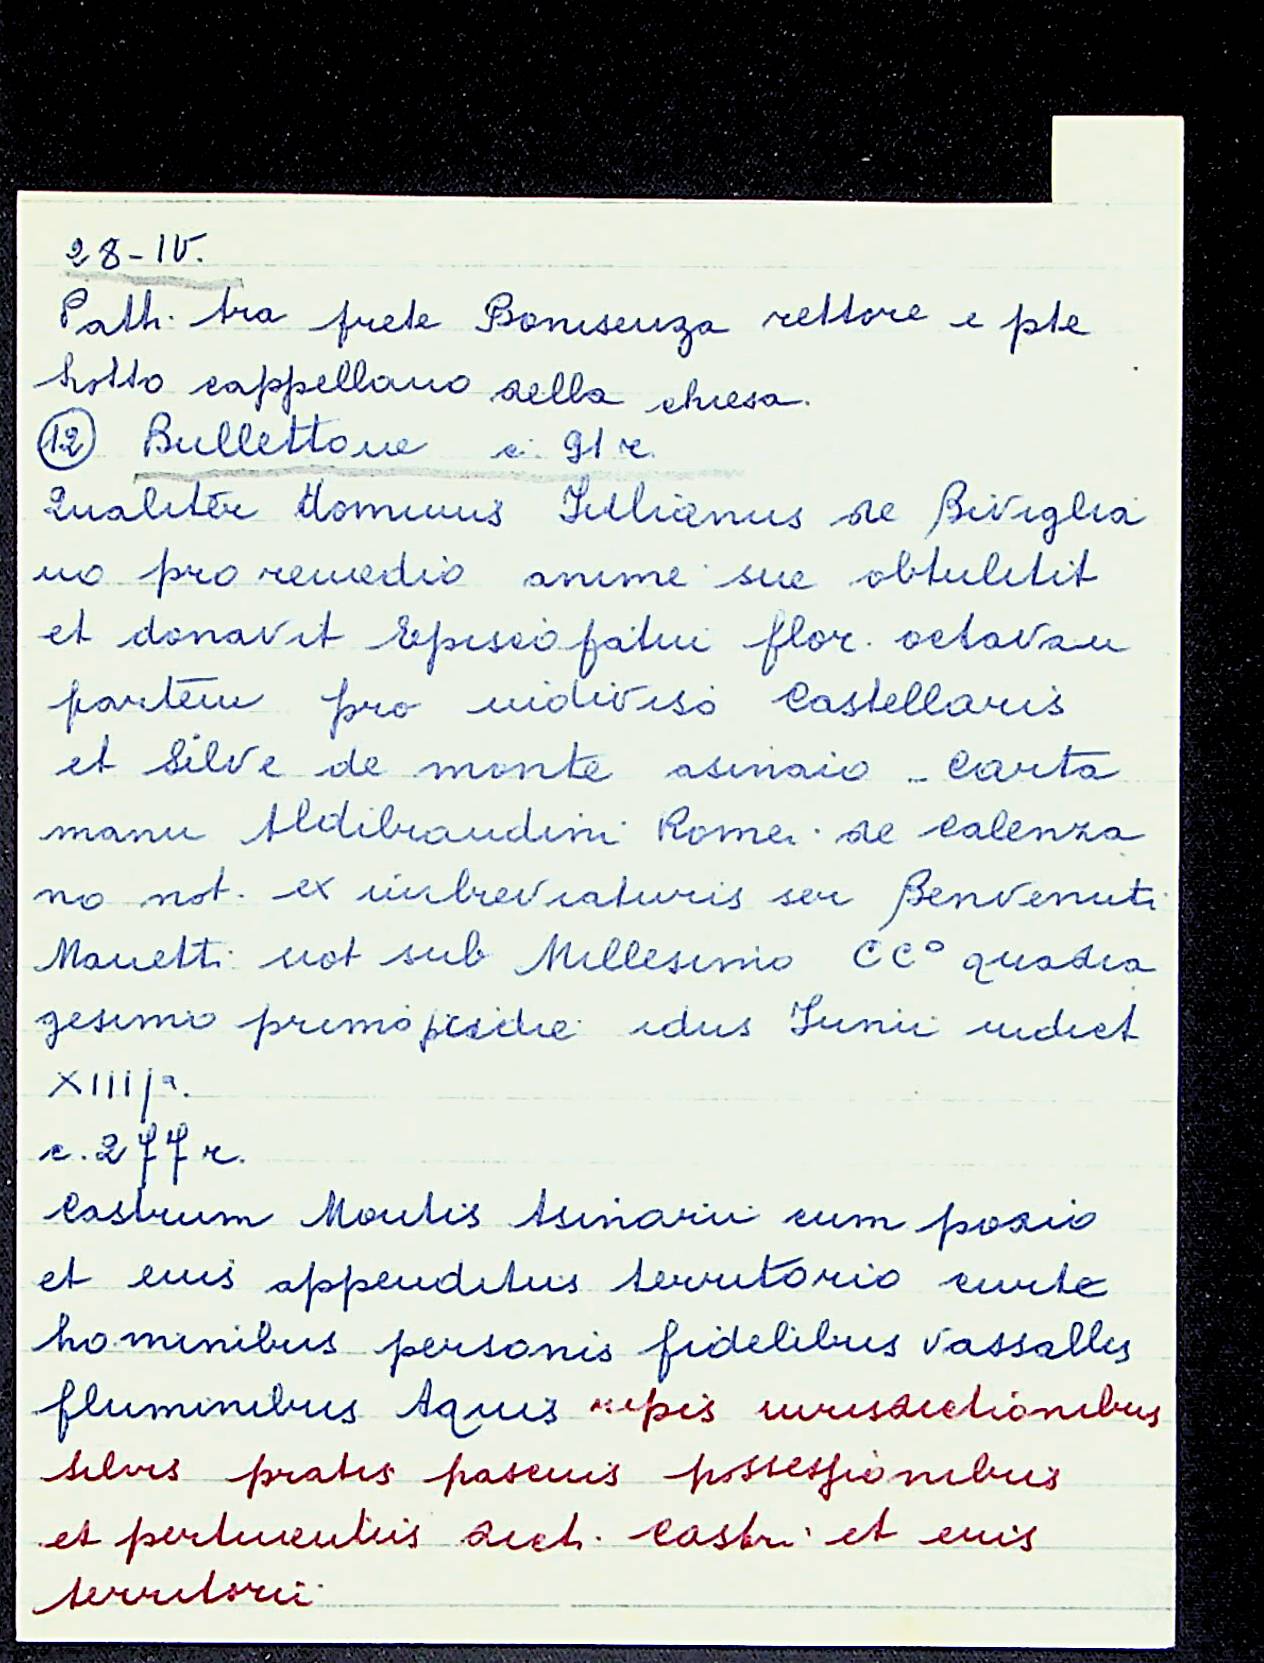 28-IV.
Patti tra frete Bonisenza rettore e pte
hotto cappellano della chiesa.
(12) Bullettone c. 91 r.
Qualiter Dominus Jullianus de Biviglia
no pro remedio anime sue obtulitit
et donavit Episcopatui flor. octavam
partem pro indiviso Castellaris
et Silve de monte asinaio - Carta
manu Aldibrandini Romei de Calenza
no not. ex imbreviaturis ser Benvenuti
Manetti not sub Millesimo CC° quadra
gesimo primo pridie idus Junii indict
XIIIJa.
c. 277 r.
Castrum Montis Asinarii cum podio
et eius appenditus territorio curte
hominibus personis fidelibus vassallis
fluminibus Aquis ripis iurisdictionibus
silvis pratis pascuis possessionibus
et pertinentiis dict. Castri et eius
territorii